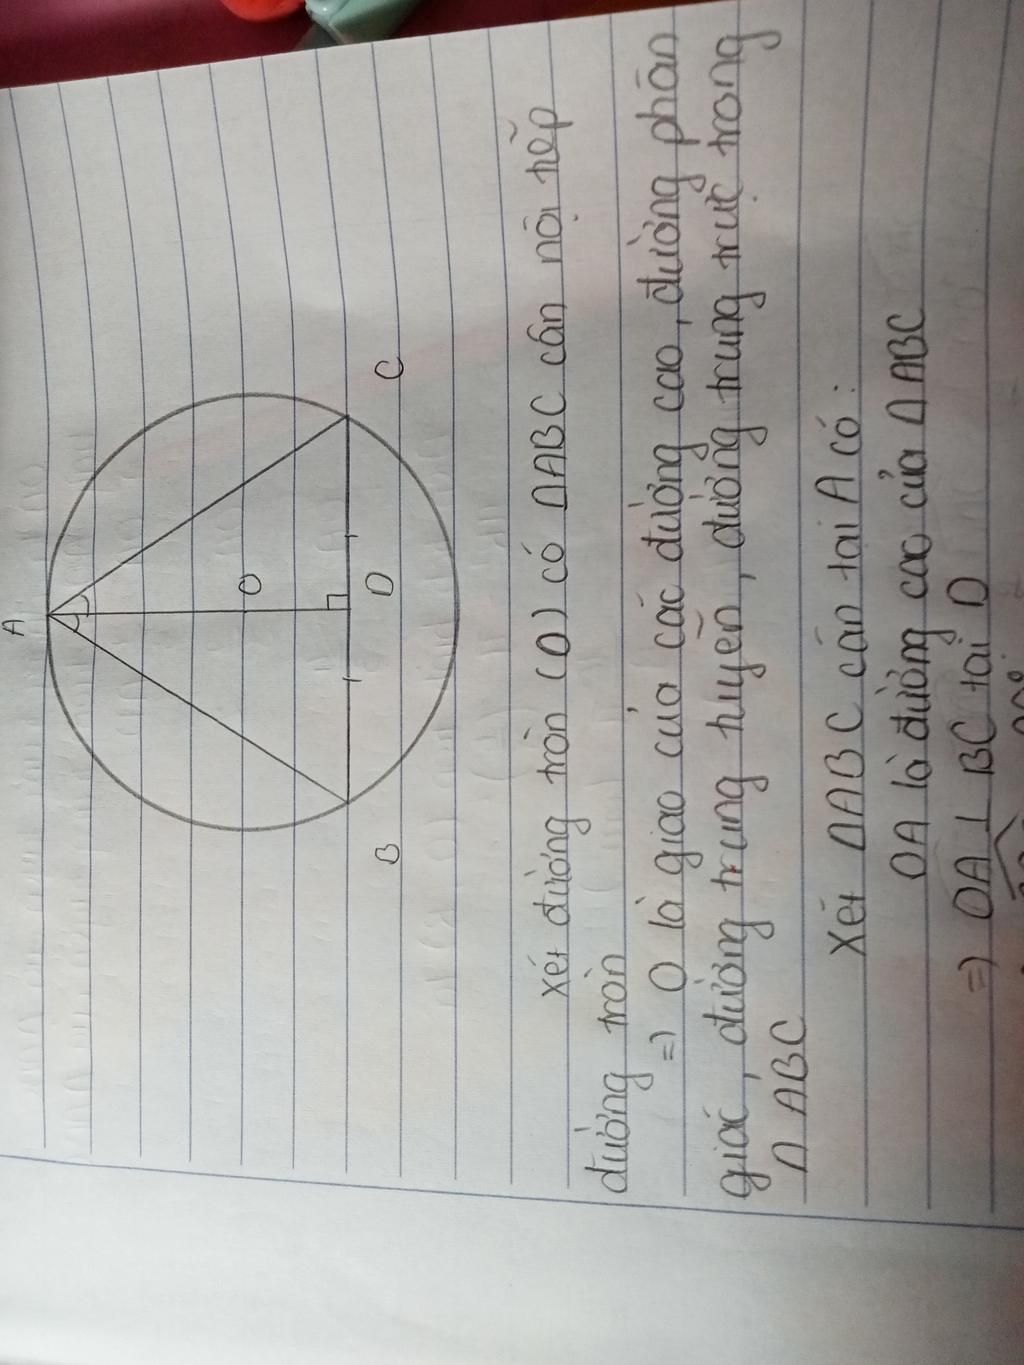 A
O
B D C
xét đường tròn (O) có ΔABC cân nội tiếp
đường tròn
=) O là giao của các đường cao, đường phân
giác, đường trung tuyến, đường trung trực trong
Δ ABC
Xét ΔABC cân tại A có:
OA là đường cao của ΔABC
=) OA ⊥ BC tại D